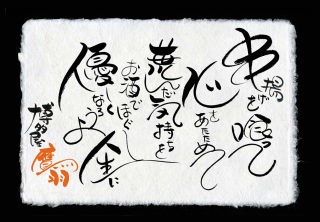 串揚げを喰って
心をあたためて
荒んだ気持を
お酒でほぐし
優しくなろうよ
人に
博多屋
鷹羽